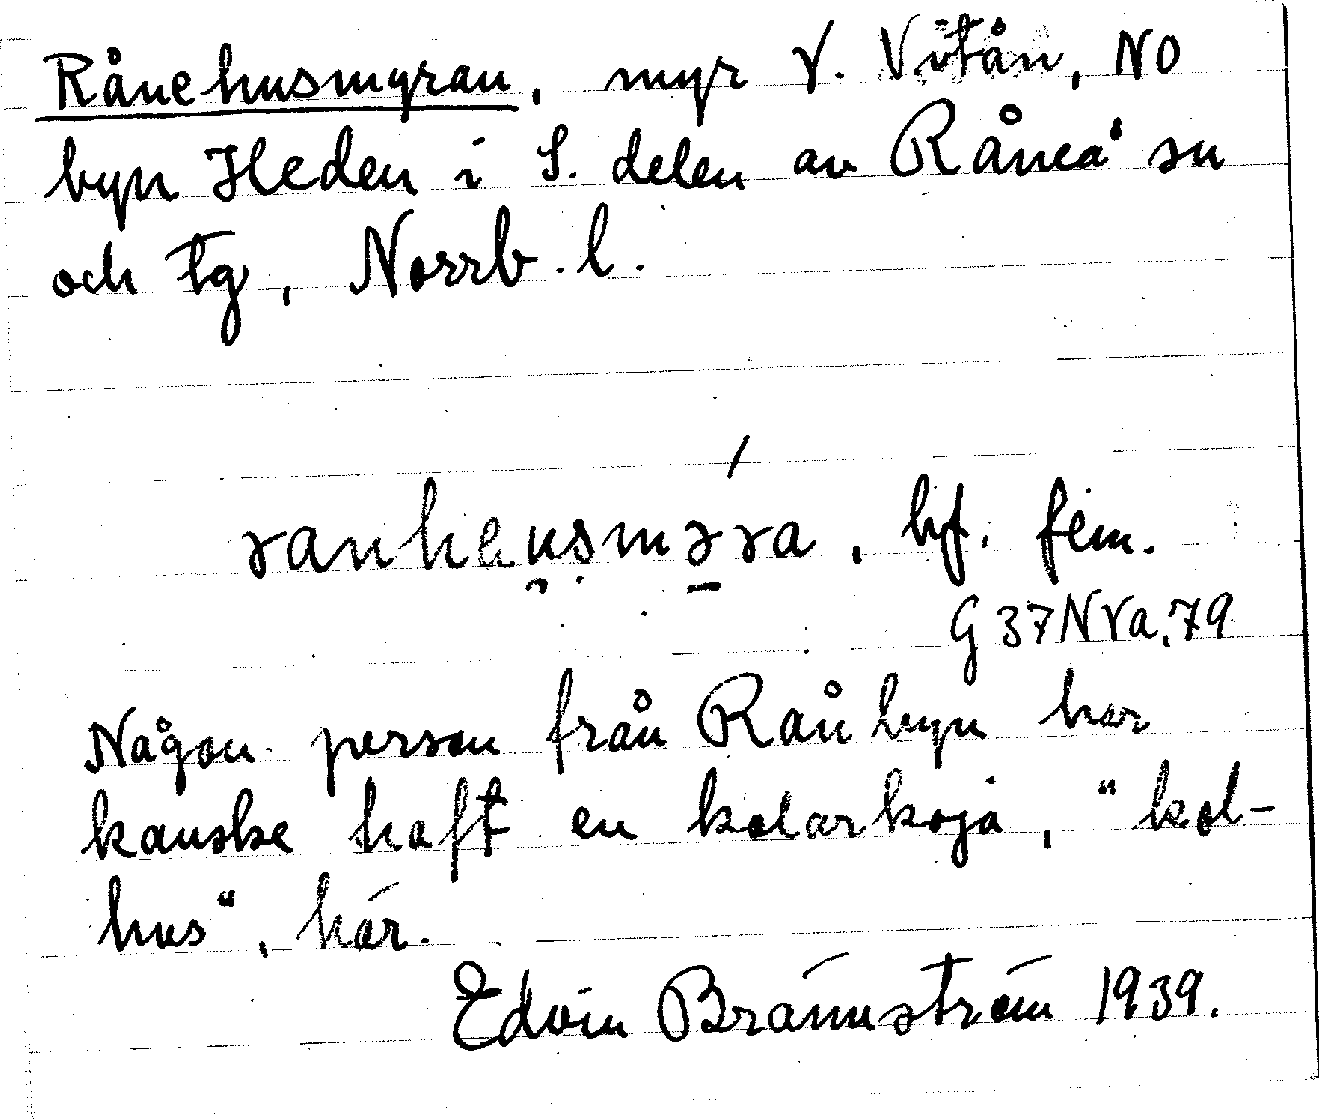 Rånehusmyran, myr V. Vitån, NO
byn Heden i S. delen av Råneå sn
och tg, Norrb. l.
ranhausməra, bf. fem.
G 37 N V a. 79
Någon person från Rånbyn har
kanske haft en kolarkoja, "kol-
hus", här.
Edvin Brännström 1939.